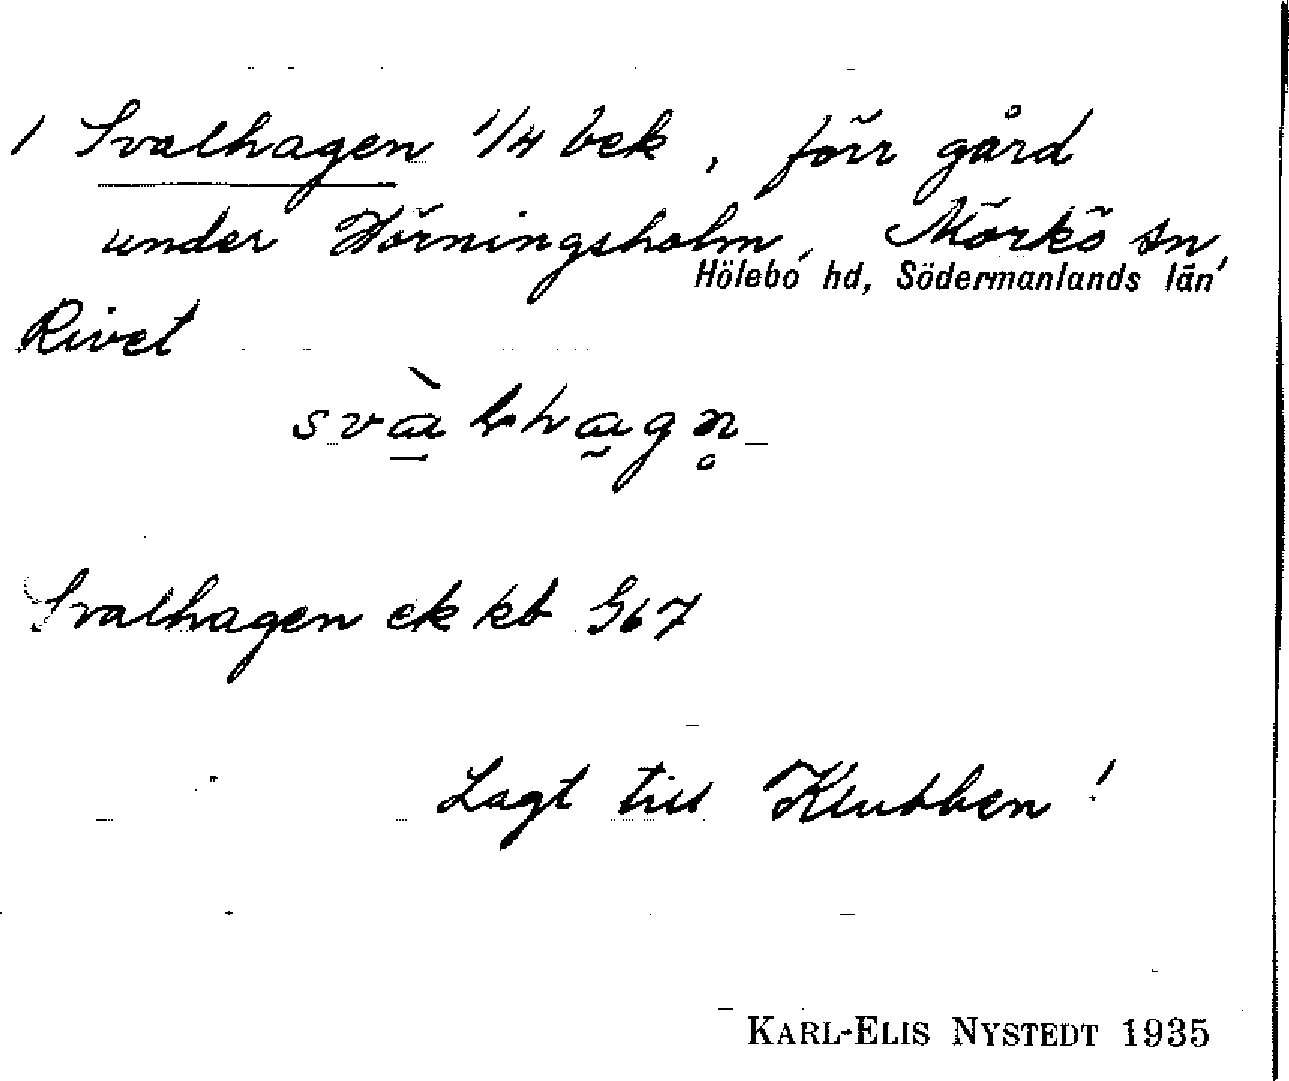 / Svalhagen 1/4 bek, förr gård
under Hörningsholm, Mörkö sn,
Hölebo hd, Södermanlands län
Rivet
svàlhagn̥
Svalhagen ek kb G67
Lagt till Klubben!
KARL-ELIS NYSTEDT 1935